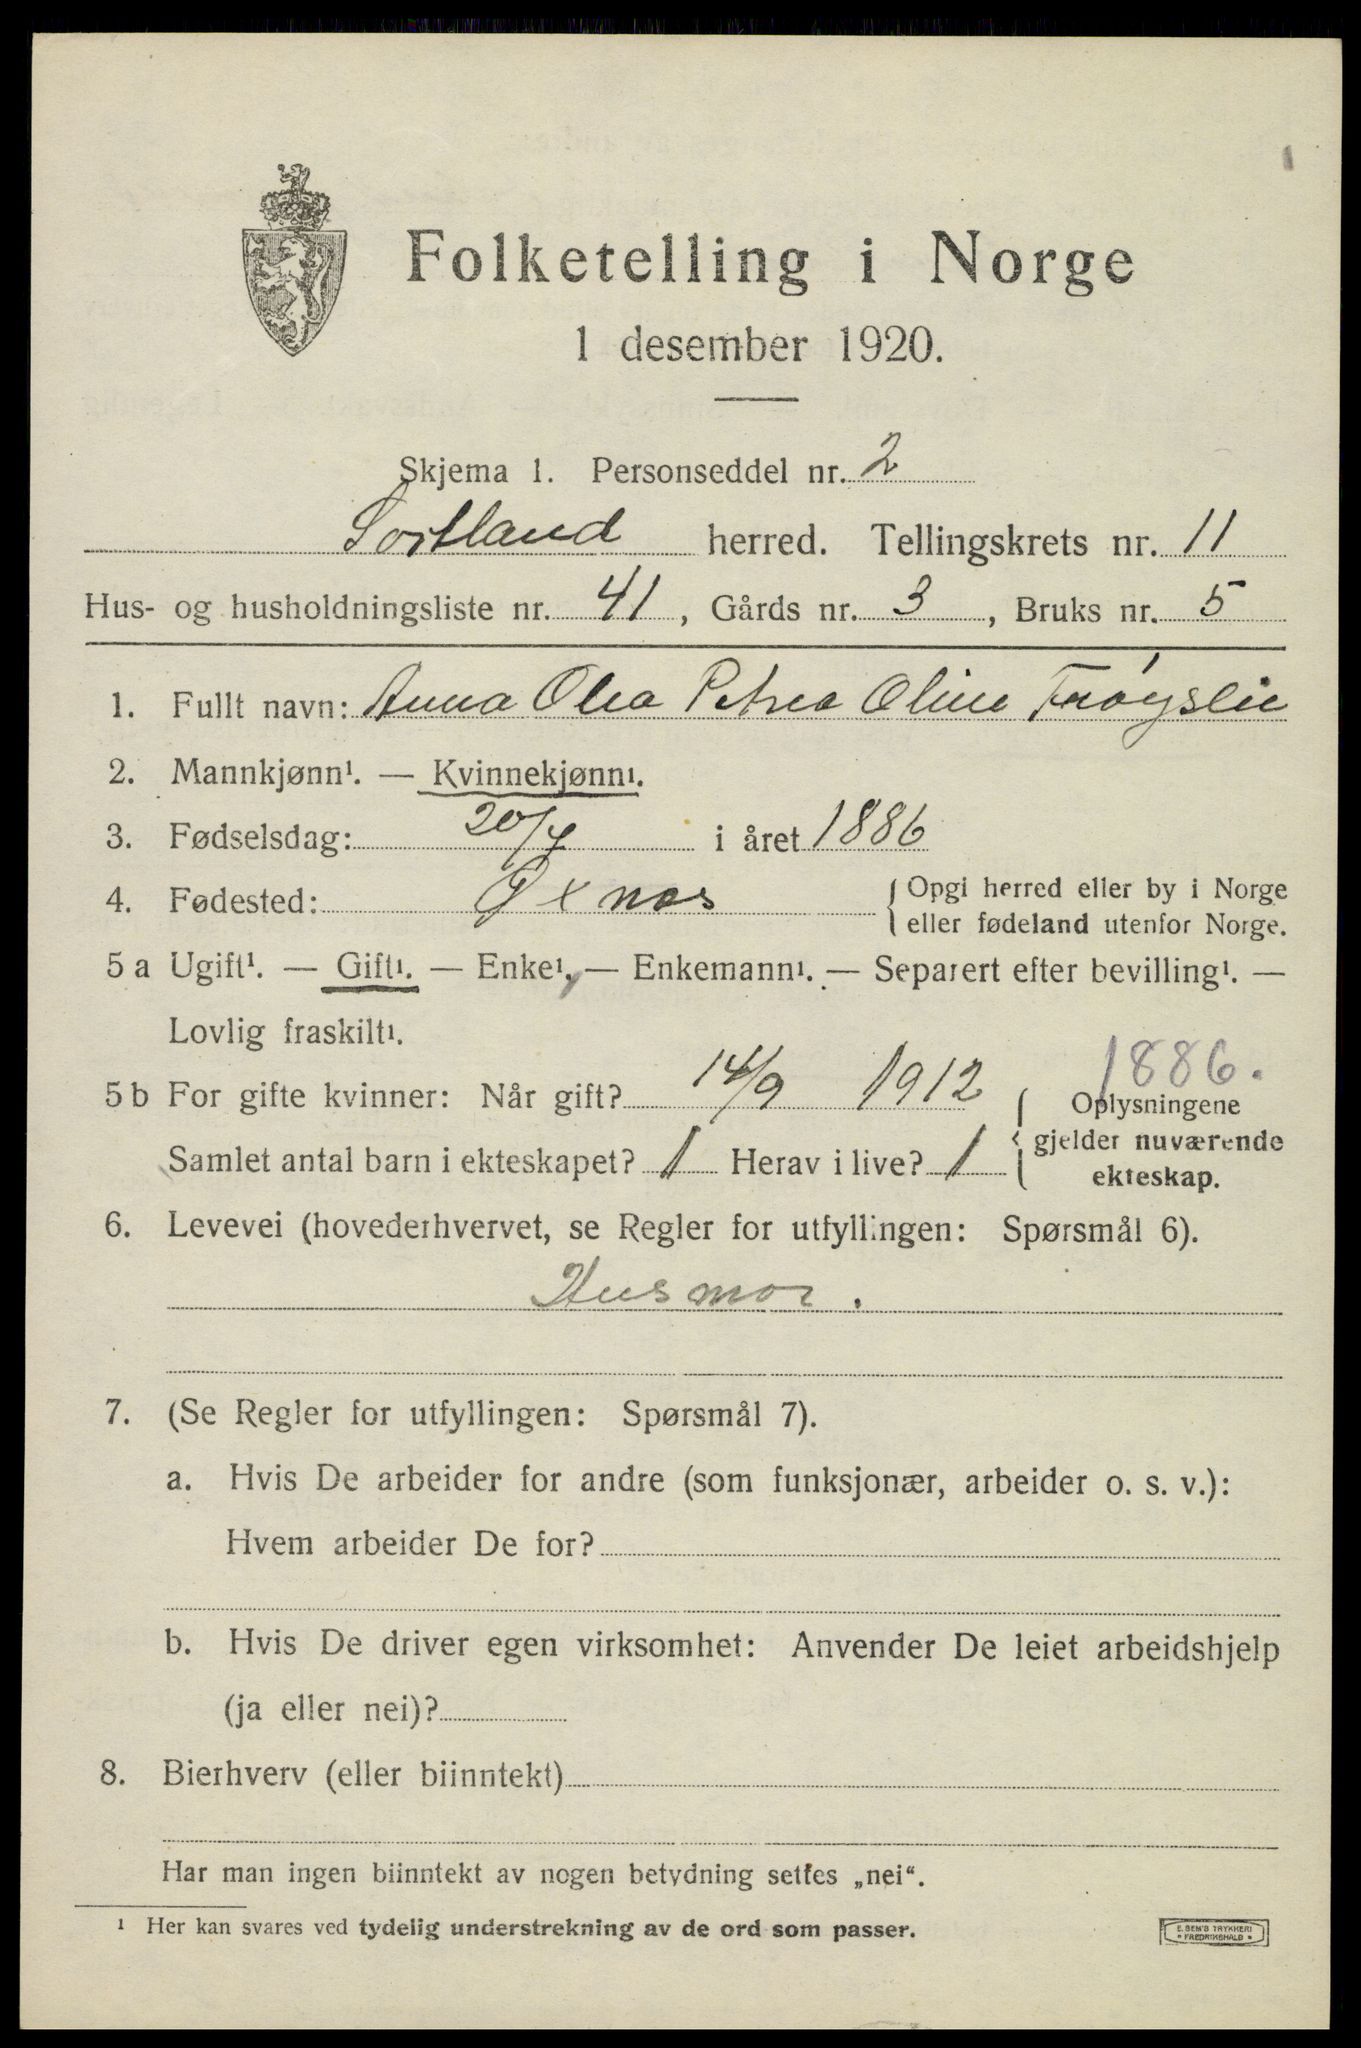 Folketelling i Norge
1 desember 1920.
Skjema 1. Personseddel nr. 2
Sortland herred. Tellingskrets nr. 11
Hus- og husholdningsliste nr. 41, Gårds nr. 3, Bruks nr. 5
1. Fullt navn: Anna Olea Petrea Oline Frøyslie
2. Mannkjønn¹. — Kvinnekjønn¹.
3. Fødselsdag: 20/4 i året 1886
4. Fødested: Øxnes { Opgi herred eller by i Norge
eller fødeland utenfor Norge.
5 a Ugift¹. — Gift¹. — Enke¹. — Enkemann¹. — Separert efter bevilling¹. —
Lovlig fraskilt¹.
1886.
5 b For gifte kvinner: Når gift? 14/9 1912 { Oplysningene
Samlet antal barn i ekteskapet? 1 Herav i live? 1 gjelder nuværende
ekteskap.
6. Levevei (hovederhvervet, se Regler for utfyllingen: Spørsmål 6).
Husmor.
7. (Se Regler for utfyllingen: Spørsmål 7).
a. Hvis De arbeider for andre (som funksjonær, arbeider o. s. v.):
Hvem arbeider De for?
b. Hvis De driver egen virksomhet: Anvender De leiet arbeidshjelp
(ja eller nei)?
8. Bierhverv (eller biinntekt)
Har man ingen biinntekt av nogen betydning settes „nei“.
¹ Her kan svares ved tydelig understrekning av de ord som passer.
E. SEM'S TRYKKERI
• FREDRIKSHALD •